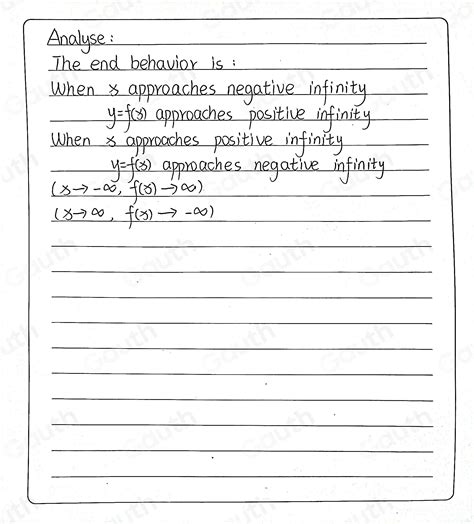 Analyse:
The end behavior is :
When x approaches negative infinity
y=f(x) approaches positive infinity
When x approaches positive infinity
y=f(x) approaches negative infinity
(x→ -∞, f(x)→∞)
(x→∞, f(x)→ -∞)